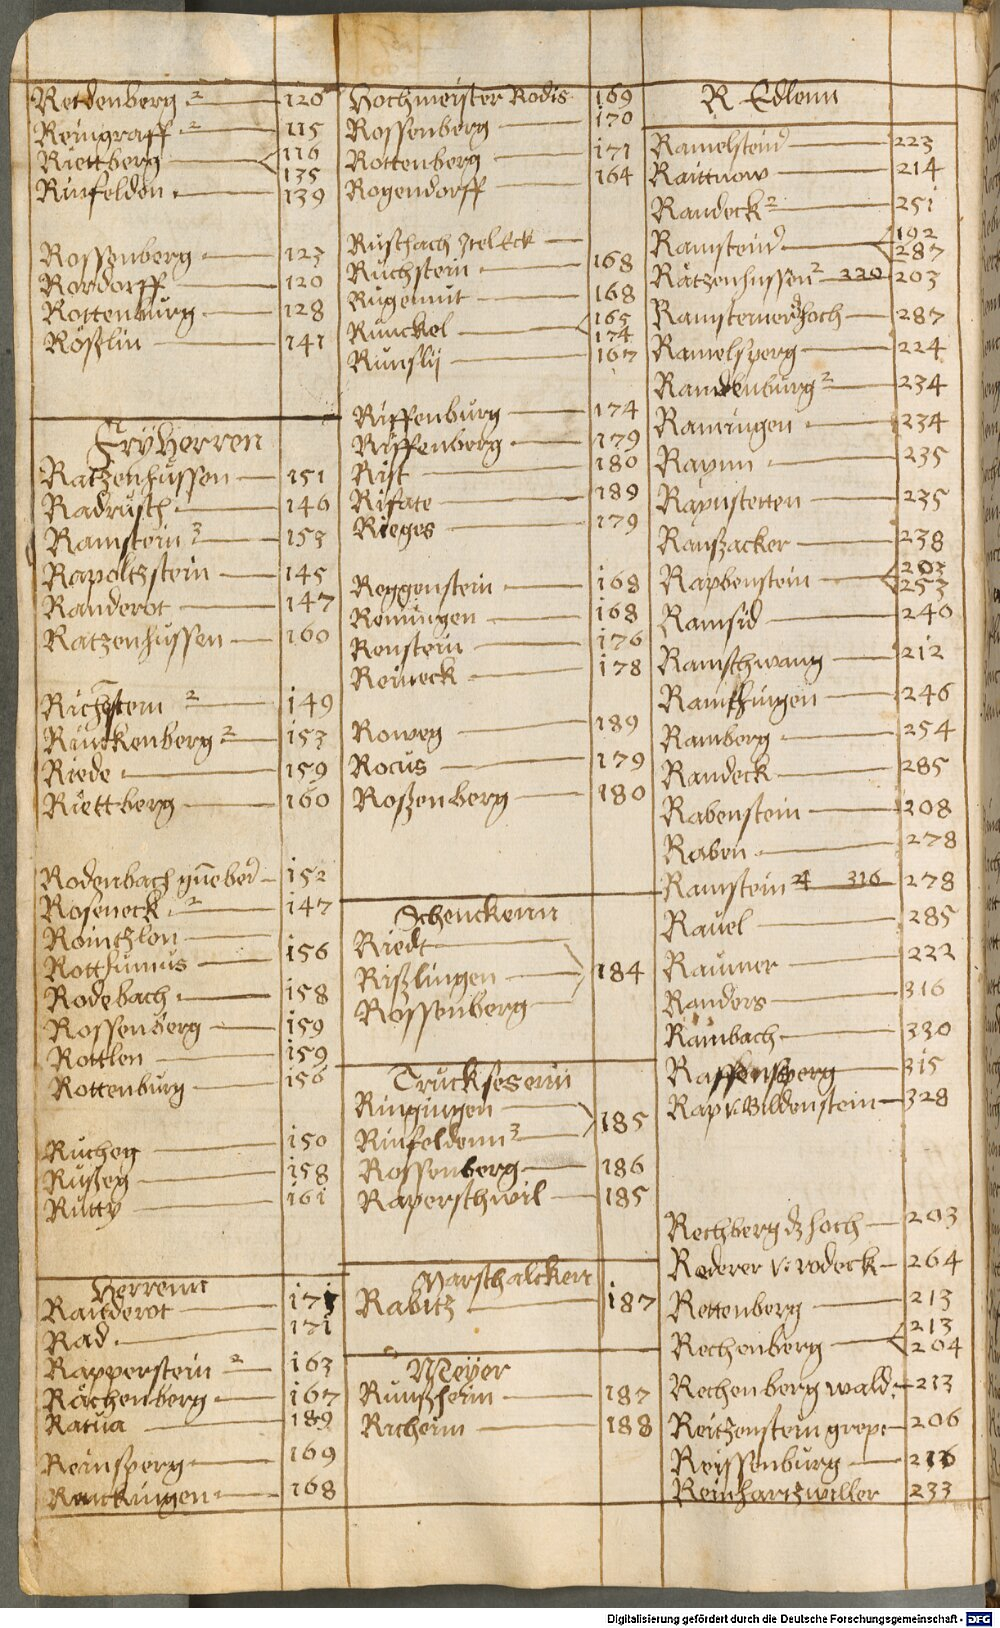 Retdenberg 2 120
Reingraff 2 115
Riettberg 116 135
Rinfelden 139
Rossenberg 123
Rordorff 120
Rottenburg 128
Rößlin 141
FryHerren
Ratzenhussen 151
Radrusch 146
Ramstein 3 153
Rapoltzstein 145
Randerot 147
Ratzenhussen 160
Richstein 2 149
Rinckenberg 2 153
Riede 159
Riettberg 160
Rodenbach 152
Roseneck 2 147
Rointzlon
Rotthumus 156
Rodebach 158
Rossenberg 159
Rottlen 159
Rottenburg 156
Rucheg 150
Rußeg 158
Rutty 161
Herrenn
Randerot 171
Rad 171
Rapperstein 2 163
Rachenberg 167
Ratua 189
Reinsperg 169
Reuckingen 168
Hochmeister Rodis 169
170
Rossenberg
Rottenberg 171
Rogendorff 164
Ruschach
Ruchstein 168
Rugemut 168
Runckel 165 174
Runslij 167
Riffenburg 174
Riffenberg 179
Rist 180
Rifate 189
Rieges 179
Reggenstein 168
Remingen 168
Renstein 176
Reineck 178
Roweg 189
Rocus 179
Roßenberg 180
Schenckenn
Riedt
Rißlingen 184
Rossenberg
Trucksesenn
Ringingen
Rinfeldenn 3 185
Rossenberg 186
Raperschwil 185
Marschalcken
Rabitz 187
Meyer
Runßheim 187
Richeim 188
R. Edlenn
Ramelstein 223
Raittnow 214
Randeck 2 251
Ramstein 192 287
Ratzenhussen 2 320 203
Ramsteiner hoch 287
Ramelsperg 224
Randenburg 2 234
Ramingen 234
Raynn 235
Raynstetten 235
Ranßacker 238
Rapbenstein 203 253
Ramsid 240
Ramschwang 212
Ramthingen 246
Ramberg 254
Randeck 285
Rabenstein 208
Raben 278
Ramstein 4 316 278
Rauel 285
Raumer 222
Randers 316
Rambach 330
Raffensperg 315
Rap v. Wildenstein 328
Rechberg dz hoch 203
Rederer v. rodeck 264
Rettenberg 213
Rechenberg 213 204
Rechenberg wald: 213
Reitzenstein grep: 206
Reissenburg 216
Reinhartzwiller 233
Digitalisierung gefördert durch die Deutsche Forschungsgemeinschaft - DFG